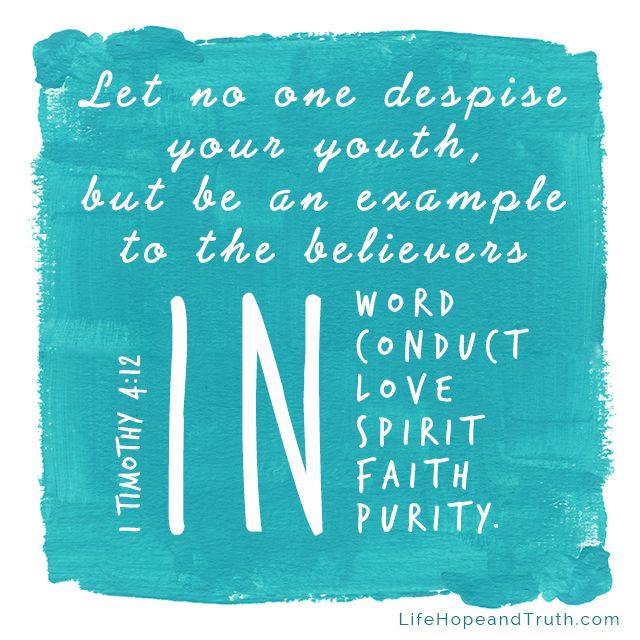 Let no one despise
your youth,
but be an example
to the believers
1 TIMOTHY 4:12
IN
WORD
CONDUCT
LOVE
SPIRIT
FAITH
PURITY.
LifeHopeandTruth.com